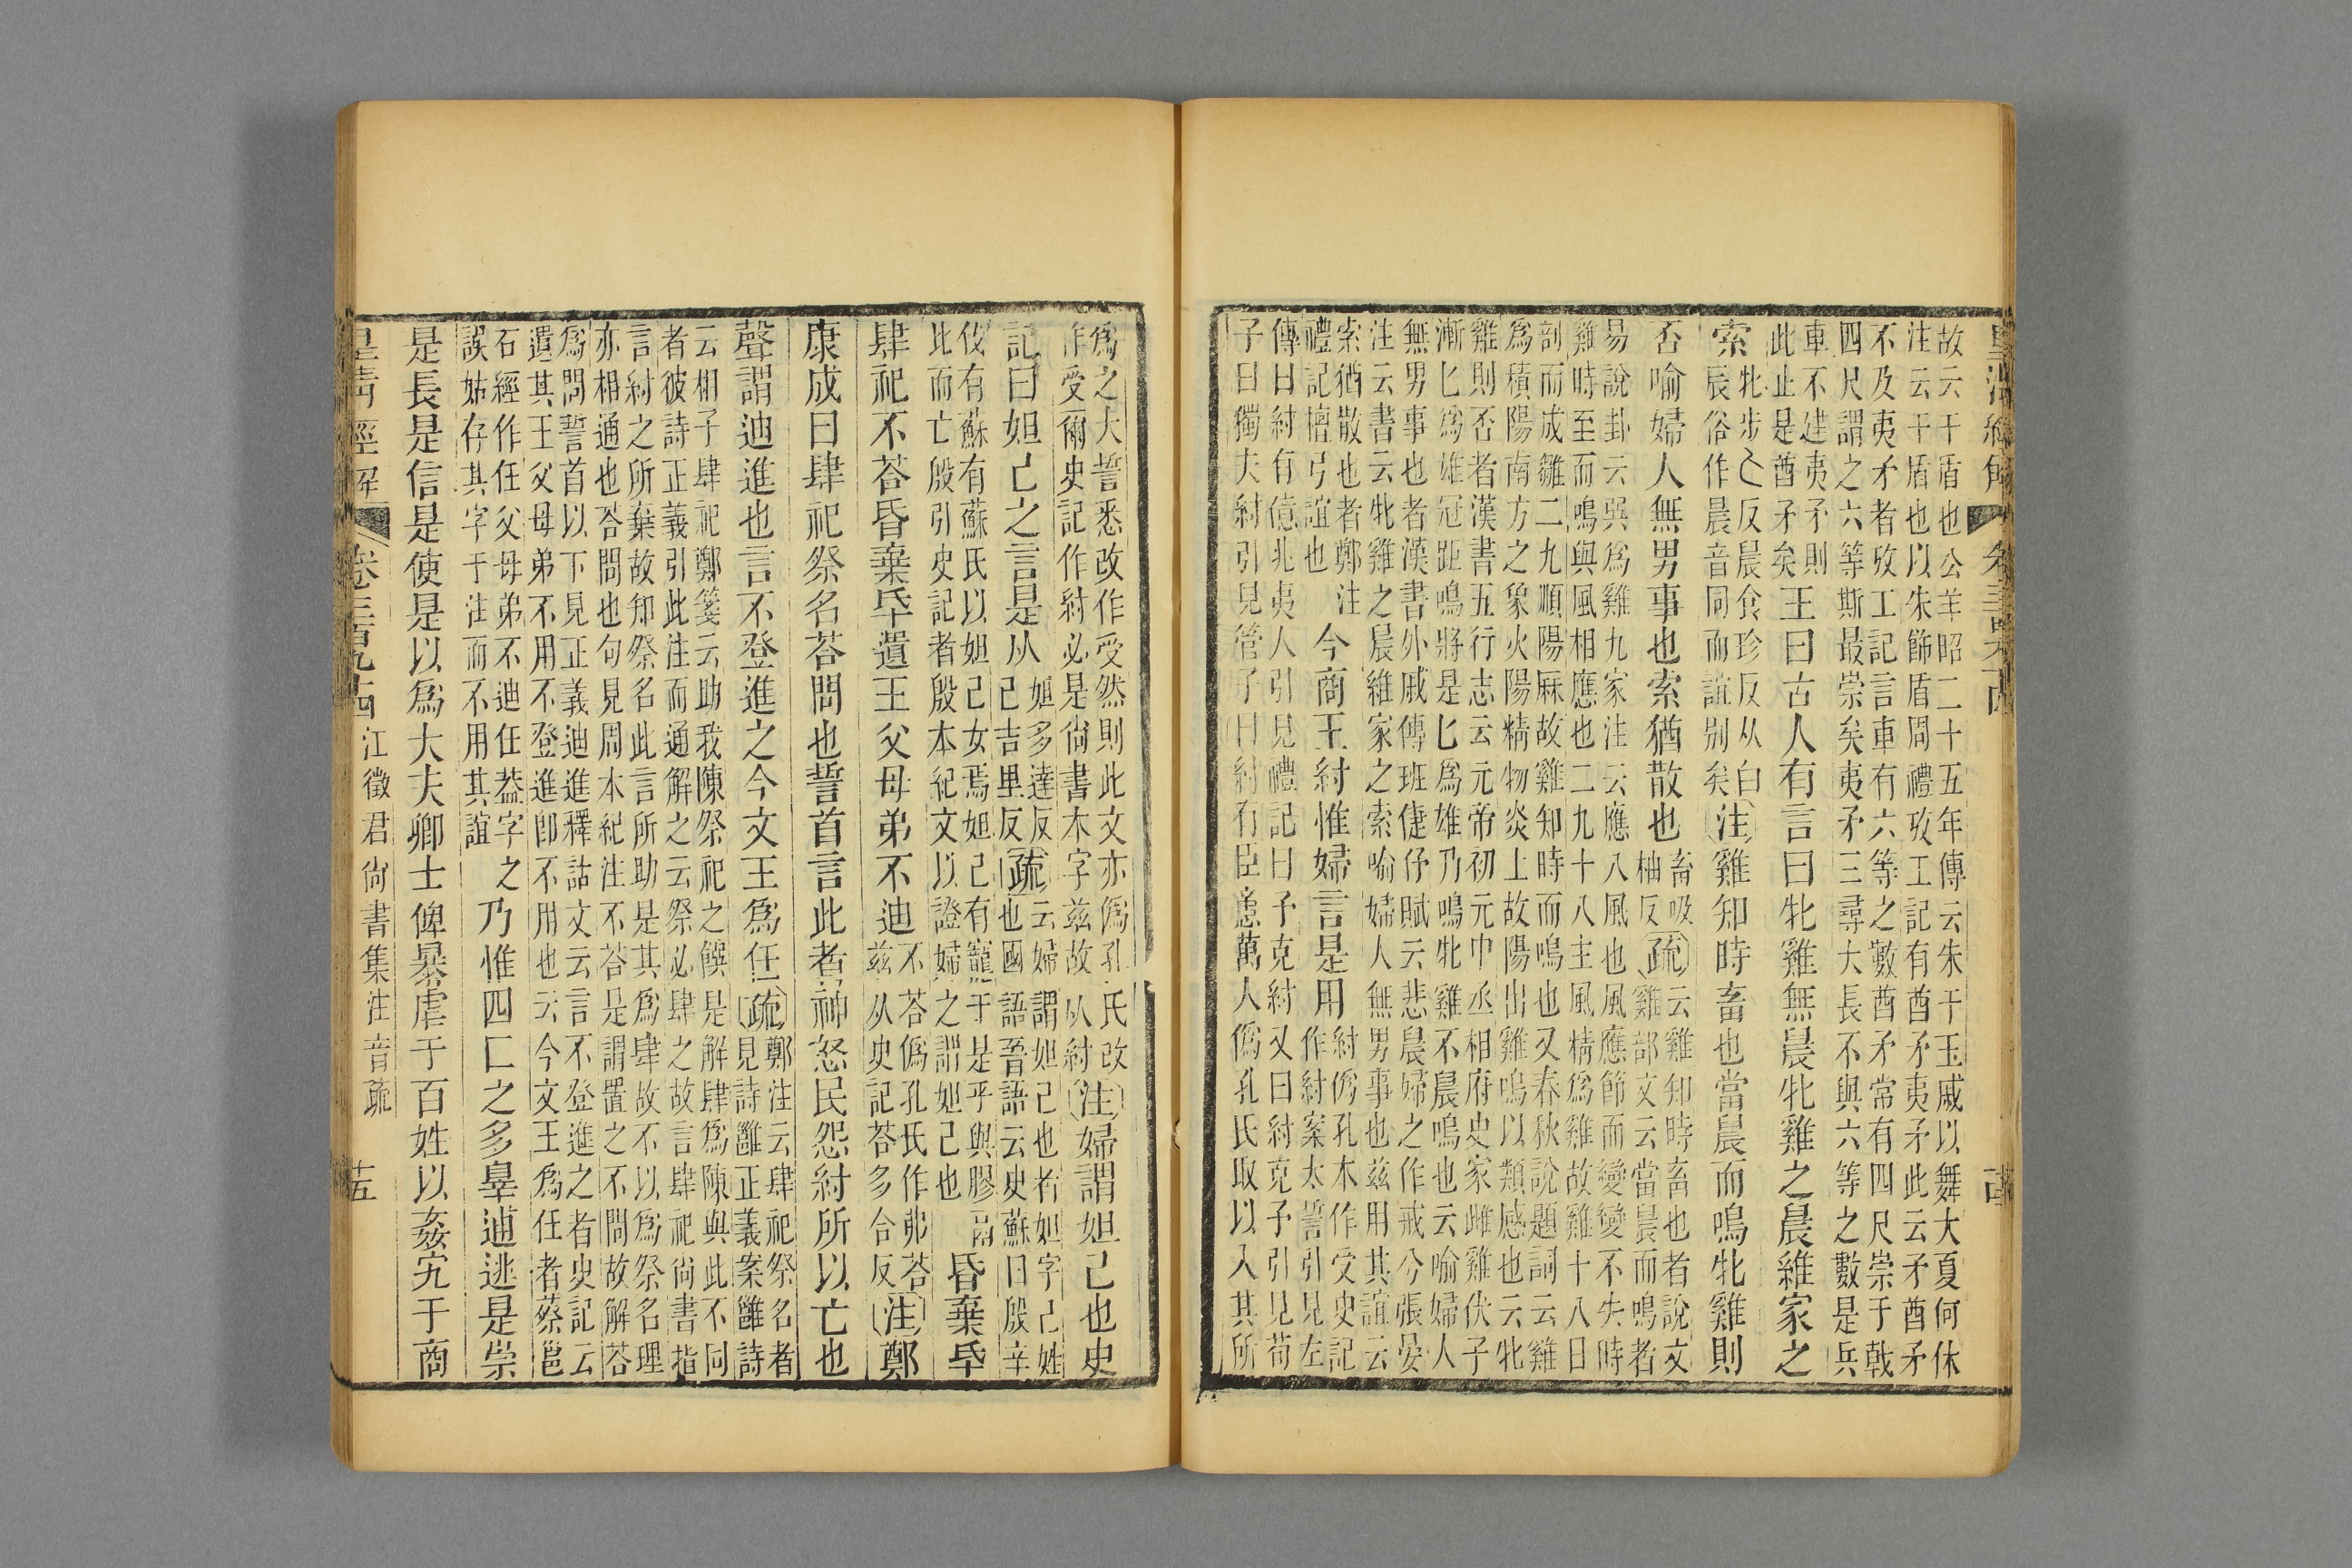 皇淸經解 卷三百九十四 古
故云干盾也公羊昭二十五年傳云朱干玉戚以舞大夏何休
注云干盾也以朱飾盾周禮攷工記有酋矛夷矛此云矛酋矛
不及夷矛者攷工記言車有六等之數酋矛常有四尺崇于戟
四尺謂之六等斯最崇矣夷矛三尋大長不與六等之數是兵
車不建夷矛則
此止是酋矛矣
王曰古人有言曰牝雞無晨牝雞之晨維家之
索
牝步𠤎反晨食珍反从臼
辰俗作晨音同而誼别矣
注雞知時畜也當晨而鳴牝雞則
否喻婦人無男事也索猶散也
畜吸
柚反
疏
云雞知時畜也者說文
雞部文云當晨而鳴者
易說卦云巽爲雞九家注云應八風也風應節而變變不失時
雞時至而鳴與風相應也二九十八主風精爲雞故雞十八日
剖而成雛二九順陽厤故雞知時而鳴也又春秋說題詞云雞
爲積陽南方之象火陽精物炎上故陽出雞鳴以類感也云牝
雞則否者漢書五行志云元帝初元中丞相府史家雌雞伏子
漸匕爲雄冠距鳴將是匕爲雄乃鳴牝雞不晨鳴也云喻婦人
無男事也者漢書外戚傳班倢伃賦云悲晨婦之作戒兮張晏
注云書云牝雞之晨維家之索喻婦人無男事也兹用其誼云
索猶散也者鄭注
禮記檀弓誼也
今商王紂惟婦言是用
紂僞孔本作受史記
作紂案太誓引見左
傳曰紂有億兆夷人引見禮記曰予克紂又曰紂克予引見荀
子曰獨夫紂引見管子曰紂有臣億萬人僞孔氏取以入其所
爲之大誓悉改作受然則此文亦僞孔氏改
作受爾史記作紂必是尙書本字兹故从紂
注婦謂妲己也史
記曰妲己之言是从
妲多達反
己吉里反
疏
云婦謂妲己也者妲字己姓
也國語晉語云史蘇曰殷辛
伐有蘇有蘇氏以妲己女焉妲己有寵于是乎與膠鬲
比而亡殷引史記者殷本紀文以證婦之謂妲己也
昏棄𠂹
肆祀不荅昏棄𠂹遺王父母弟不迪
不荅僞孔氏作弗荅
兹从史記荅多合反
注鄭
康成曰肆祀祭名荅問也誓首言此者神怒民怨紂所以亡也
聲謂迪進也言不登進之今文王爲任
疏
鄭注云肆祀祭名者
見詩雝正義案雝詩
云相予肆祀鄭箋云助我陳祭祀之饌是解肆爲陳與此不同
者彼詩正義引此注而通解之云祭必肆之故言肆祀尙書指
言紂之所棄故知祭名此言所助是其爲肆故不以爲祭名理
亦相通也荅問也句見周本紀注不荅是謂置之不問故解荅
爲問誓首以下見正義迪進釋詁文云言不登進之者史記云
遺其王父母弟不用不登進卽不用也云今文王爲任者蔡邕
石經作任父母弟不迪任葢字之
誤姑存其字于注而不用其誼
乃惟四匚之多辠逋逃是崇
是長是信是使是以爲大夫卿士俾暴虐于百姓以姦宄于商
皇淸經解 卷三百九十四 江徵君尙書集注音疏 十五